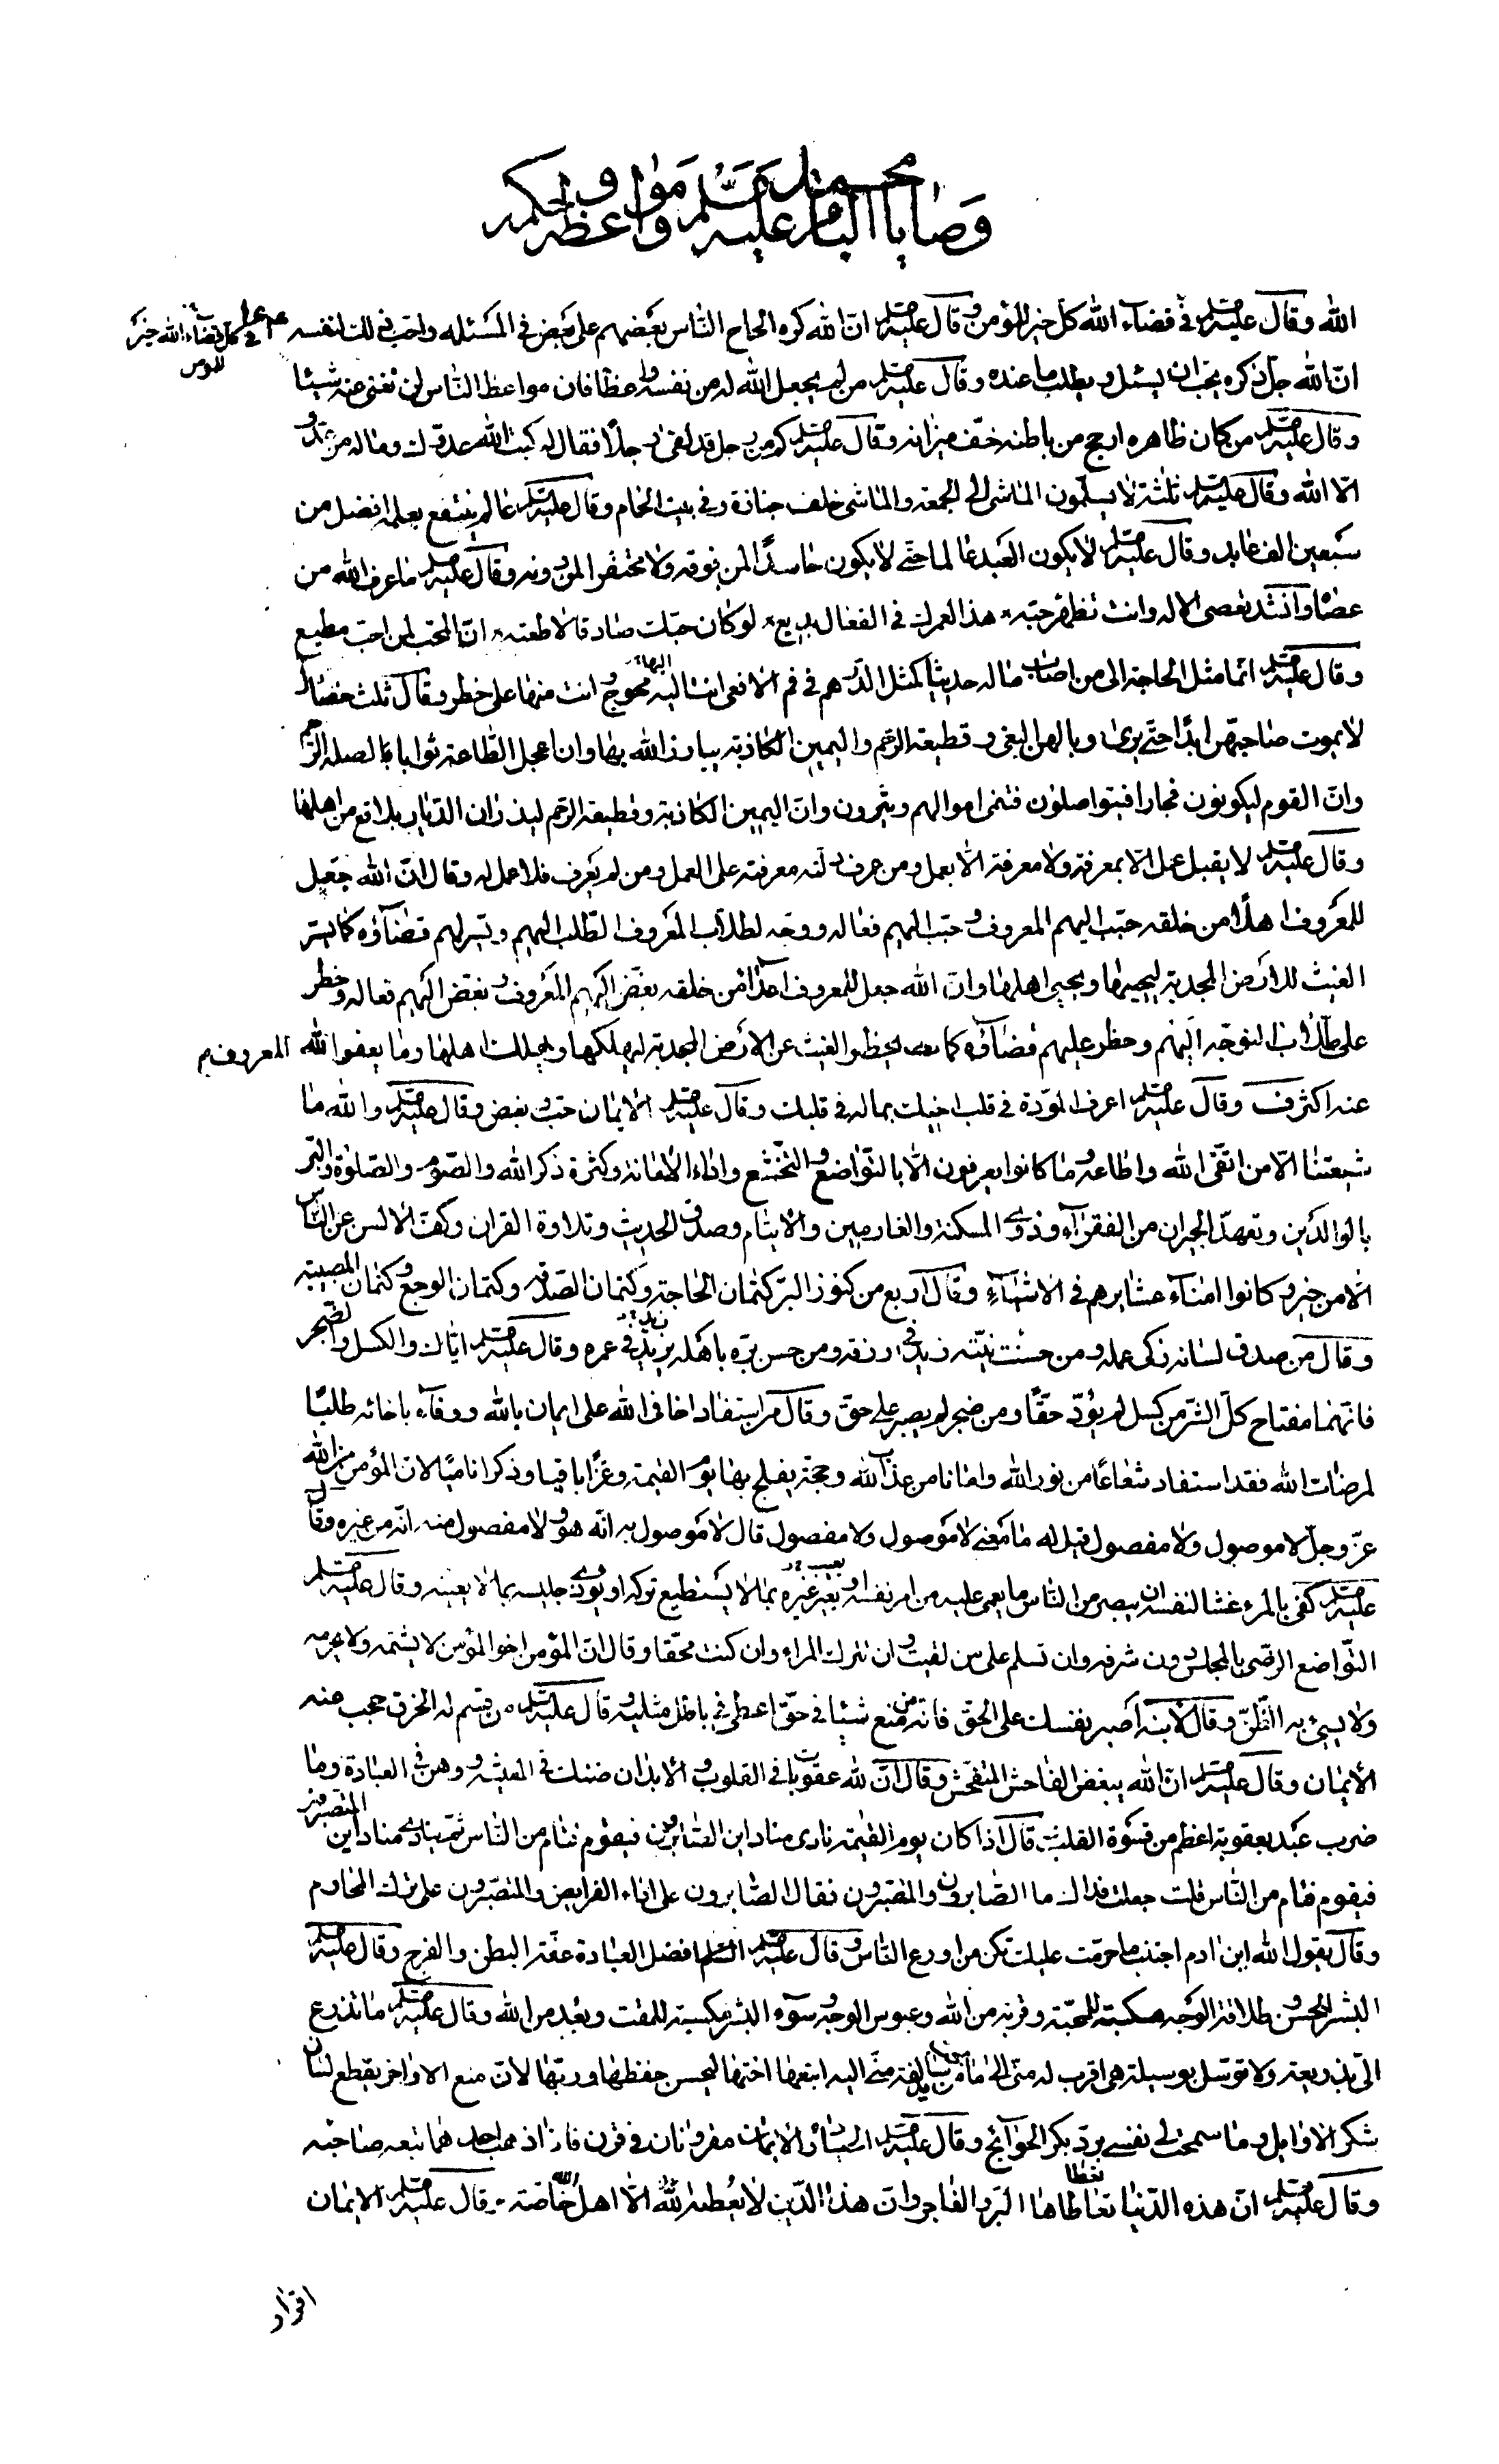 وصايا الباقر محمد بن علي عليه السلم ومواعظه وحكمه
الله وقال عليه السلم في قضاء الله كل خير للمؤمن وقال عليه السلم ان الله كره الحاح الناس بعضهم على بعض في المسئلة واحب ذلك لنفسه
في كل قضاء الله خير
للمؤمن
ان الله جل ذكره يحب ان يسئل ويطلب ما عنده وقال عليه السلم من لم يجعل الله له من نفسه واعظا فان مواعظ الناس لن تغنى عنه شيئا
وقال عليه السلم من كان ظاهره ارجح من باطنه خف ميزانه وقال عليه السلم كم من رجل قد لقى رجلا فقال له كبت الله عدوك وماله من عدو
الا الله وقال عليه السلم ثلثة لا يسلمون الماشى الى الجمعة والماشى خلف جنازة وفي بيت الحمام وقال عليه السلم عالم ينتفع بعلمه افضل من
سبعين الف عابد وقال عليه السلم لا يكون العبد عالما حتى لا يكون حاسدا لمن فوقه ولا محتقرا لمن دونه وقال عليه السلم ما عرف الله من
عصاه وانشد تعصى الاله وانت تظهر حبه هذا لعمرك في الفعال بديع لو كان حبك صادقا لاطعته ان المحب لمن احب مطيع
وقال عليه السلم انما مثل الحاجة الى من اصاب ماله حديثا كمثل الدرهم في فم الافعى انت اليه محوج وانت منها على خطر وقال ثلث خصال
اليها
لا يموت صاحبهن ابدا حتى يرى وبالهن البغى وقطيعة الرحم واليمين الكاذبة يبارز الله بها وان اعجل الطاعة ثوابا لصلة الرحم
وان القوم ليكونون فجارا فيتواصلون فتنمى اموالهم ويثرون وان اليمين الكاذبة وقطيعة الرحم ليذران الديار بلاقع من اهلها
وقال عليه السلم لا يقبل عمل الا بمعرفة ولا معرفة الا بعمل ومن عرف دلته معرفته على العمل ومن لم يعرف فلا عمل له وقال ان الله جعل
للمعروف اهلا من خلقه حبب اليهم المعروف وحبب اليهم فعاله ووجه لطلاب المعروف الطلب اليهم ويسر لهم قضاؤه كما يسر
الغيث للارض المجدبة ليحييها ويحيى اهلها وان الله جعل للمعروف اعداء من خلقه بغض اليهم المعروف وبغض اليهم فعاله وحظر
على طلاب التوجه اليهم وحظر عليهم قضاؤه كما يحظر الغيث عن الارض المجدبة ليهلكها ويهلك اهلها وما يعفوا الله
المعروف
عنه اكثر ف وقال عليه السلم اعرف المودة في قلب اخيك بماله في قلبك وقال عليه السلم الايمان حب وبغض وقال عليه السلم والله ما
شيعتنا الا من اتقى الله واطاعه وما كانوا يعرفون الا بالتواضع والتخشع واداء الامانة وكثرة ذكر الله والصوم والصلوة والبر
بالوالدين وتعهد الجيران من الفقراء وذوى المسكنة والغارمين والايتام وصدق الحديث وتلاوة القران وكف الالسن عن الناس
الا من خير وكانوا امناء عشايرهم في الاشياء وقال اربع من كنوز البر كتمان الحاجة وكتمان الصدقة وكتمان الوجع وكتمان المصيبة
وقال من صدق لسانه زكى عمله ومن حسنت نيته زيد في رزقه ومن حسن بره باهله يزيد في عمره وقال عليه السلم اياك والكسل والضجر
فانهما مفتاح كل الشر من كسل لم يؤد حقا ومن ضجر لم يصبر على حق وقال من استفاد اخا في الله على ايمان بالله ووفاء باخائه طلبا
لمرضات الله فقد استفاد شعاعا من نور الله وامانا من عذاب الله وحجة يفلج بها يوم القيمة وعزا باقيا وذكرا ناميا لان المؤمن من الله
عز وجل لا موصول ولا مفصول قيل له ما معنى لا موصول ولا مفصول قال لا موصول به انه هو ولا مفصول منه انه من غيره وقال
عليه السلم كفى بالمرء غشا لنفسه ان يبصر من الناس ما يعمى عليه من امر نفسه او يعير غيره بما لا يستطيع تركه او يوذى جليسه بما لا يعنيه وقال عليه السلم
التواضع الرضى بالمجلس دون شرفه وان تسلم على من لقيت وان تترك المراء وان كنت محقا وقال ان المؤمن اخو المؤمن لا يشتمه ولا يحرمه
ولا يسىء به الظن وقال لابنه اصبر نفسك على الحق فانه من منع شيئا في حق اعطى في باطل مثليه وقال عليه السلم من قسم له الخرق حجب عنه
الايمان وقال عليه السلم ان الله يبغض الفاحش المتفحش وقال ان لله عقوبات في القلوب والابدان ضنك في المعيشة ووهن في العبادة وما
ضرب عبد بعقوبة اعظم من قسوة القلب وقال اذا كان يوم القيمة نادى مناد اين الصابرون فيقوم فئام من الناس ثم ينادى مناد اين
المتصبرون
فيقوم فئام من الناس قلت جعلت فداك ما الصابرون والمتصبرون فقال الصابرون على اداء الفرايض والمتصبرون على ترك المحارم
وقال يقول الله ابن ادم اجتنب ما حرمت عليك تكن من اورع الناس وقال عليه السلم افضل العبادة عفة البطن والفرج وقال عليه السلم
البشر الحسن وطلاقة الوجه مكسبة للمحبة وقربة من الله وعبوس الوجه وسوء البشر مكسبة للمقت وبعد من الله وقال عليه السلم ما تذرع
الى بذريعة ولا توسل بوسيلة هي اقرب له منى الى ما يد سالفة منى اليه اتبعها اختها ليحسن حفظها وربها لان منع الاواخر يقطع لسان
شكر الاوايل وما سمحت لى نفسى برد بكر الحوائج وقال عليه السلم الحياء والايمان مقرونان في قرن فاذا ذهب احدهما تبعه صاحبه
وقال عليه السلم ان هذه الدنيا تعاطاها البر والفاجر وان هذا الدين لا يعطيه الله الا اهل الله خاصة وقال عليه السلم الايمان
اقرار